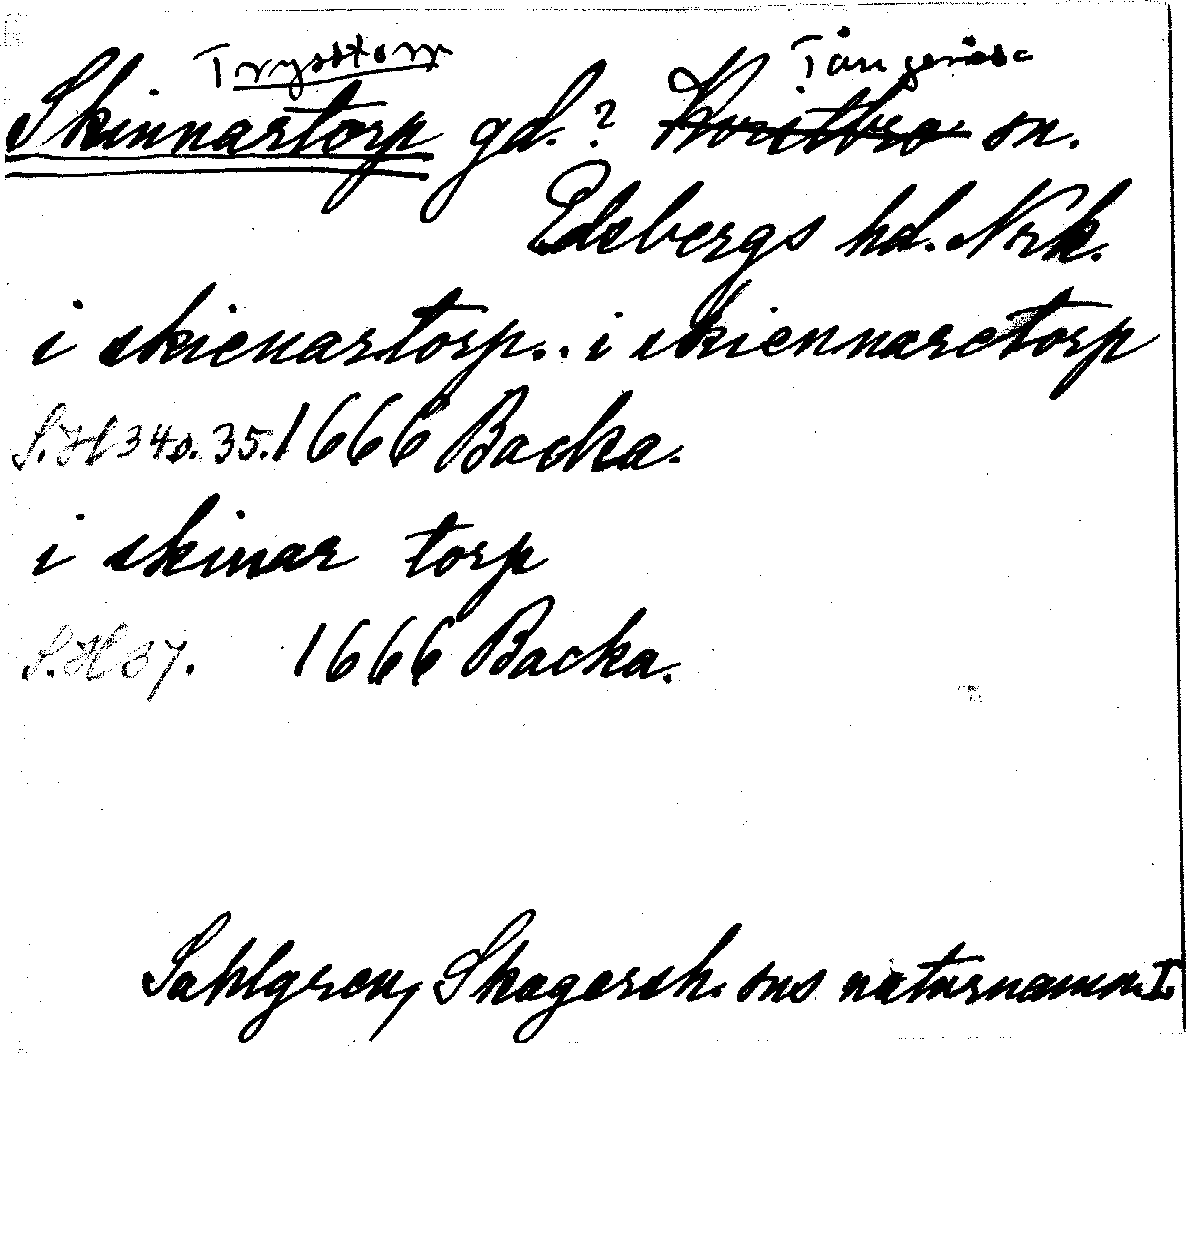 Trysstorp Tångeråsa
Skinnartorp gd.? Kvistbro sn.
Edsbergs hd. Nrk.
i skienartorp.. i skiennaretorp
S.H 34o. 35. 1666 Backa.
i skinar torp
S.H 37. 1666 Backa.
Sahlgren, Skagersh. sns naturnamn I.